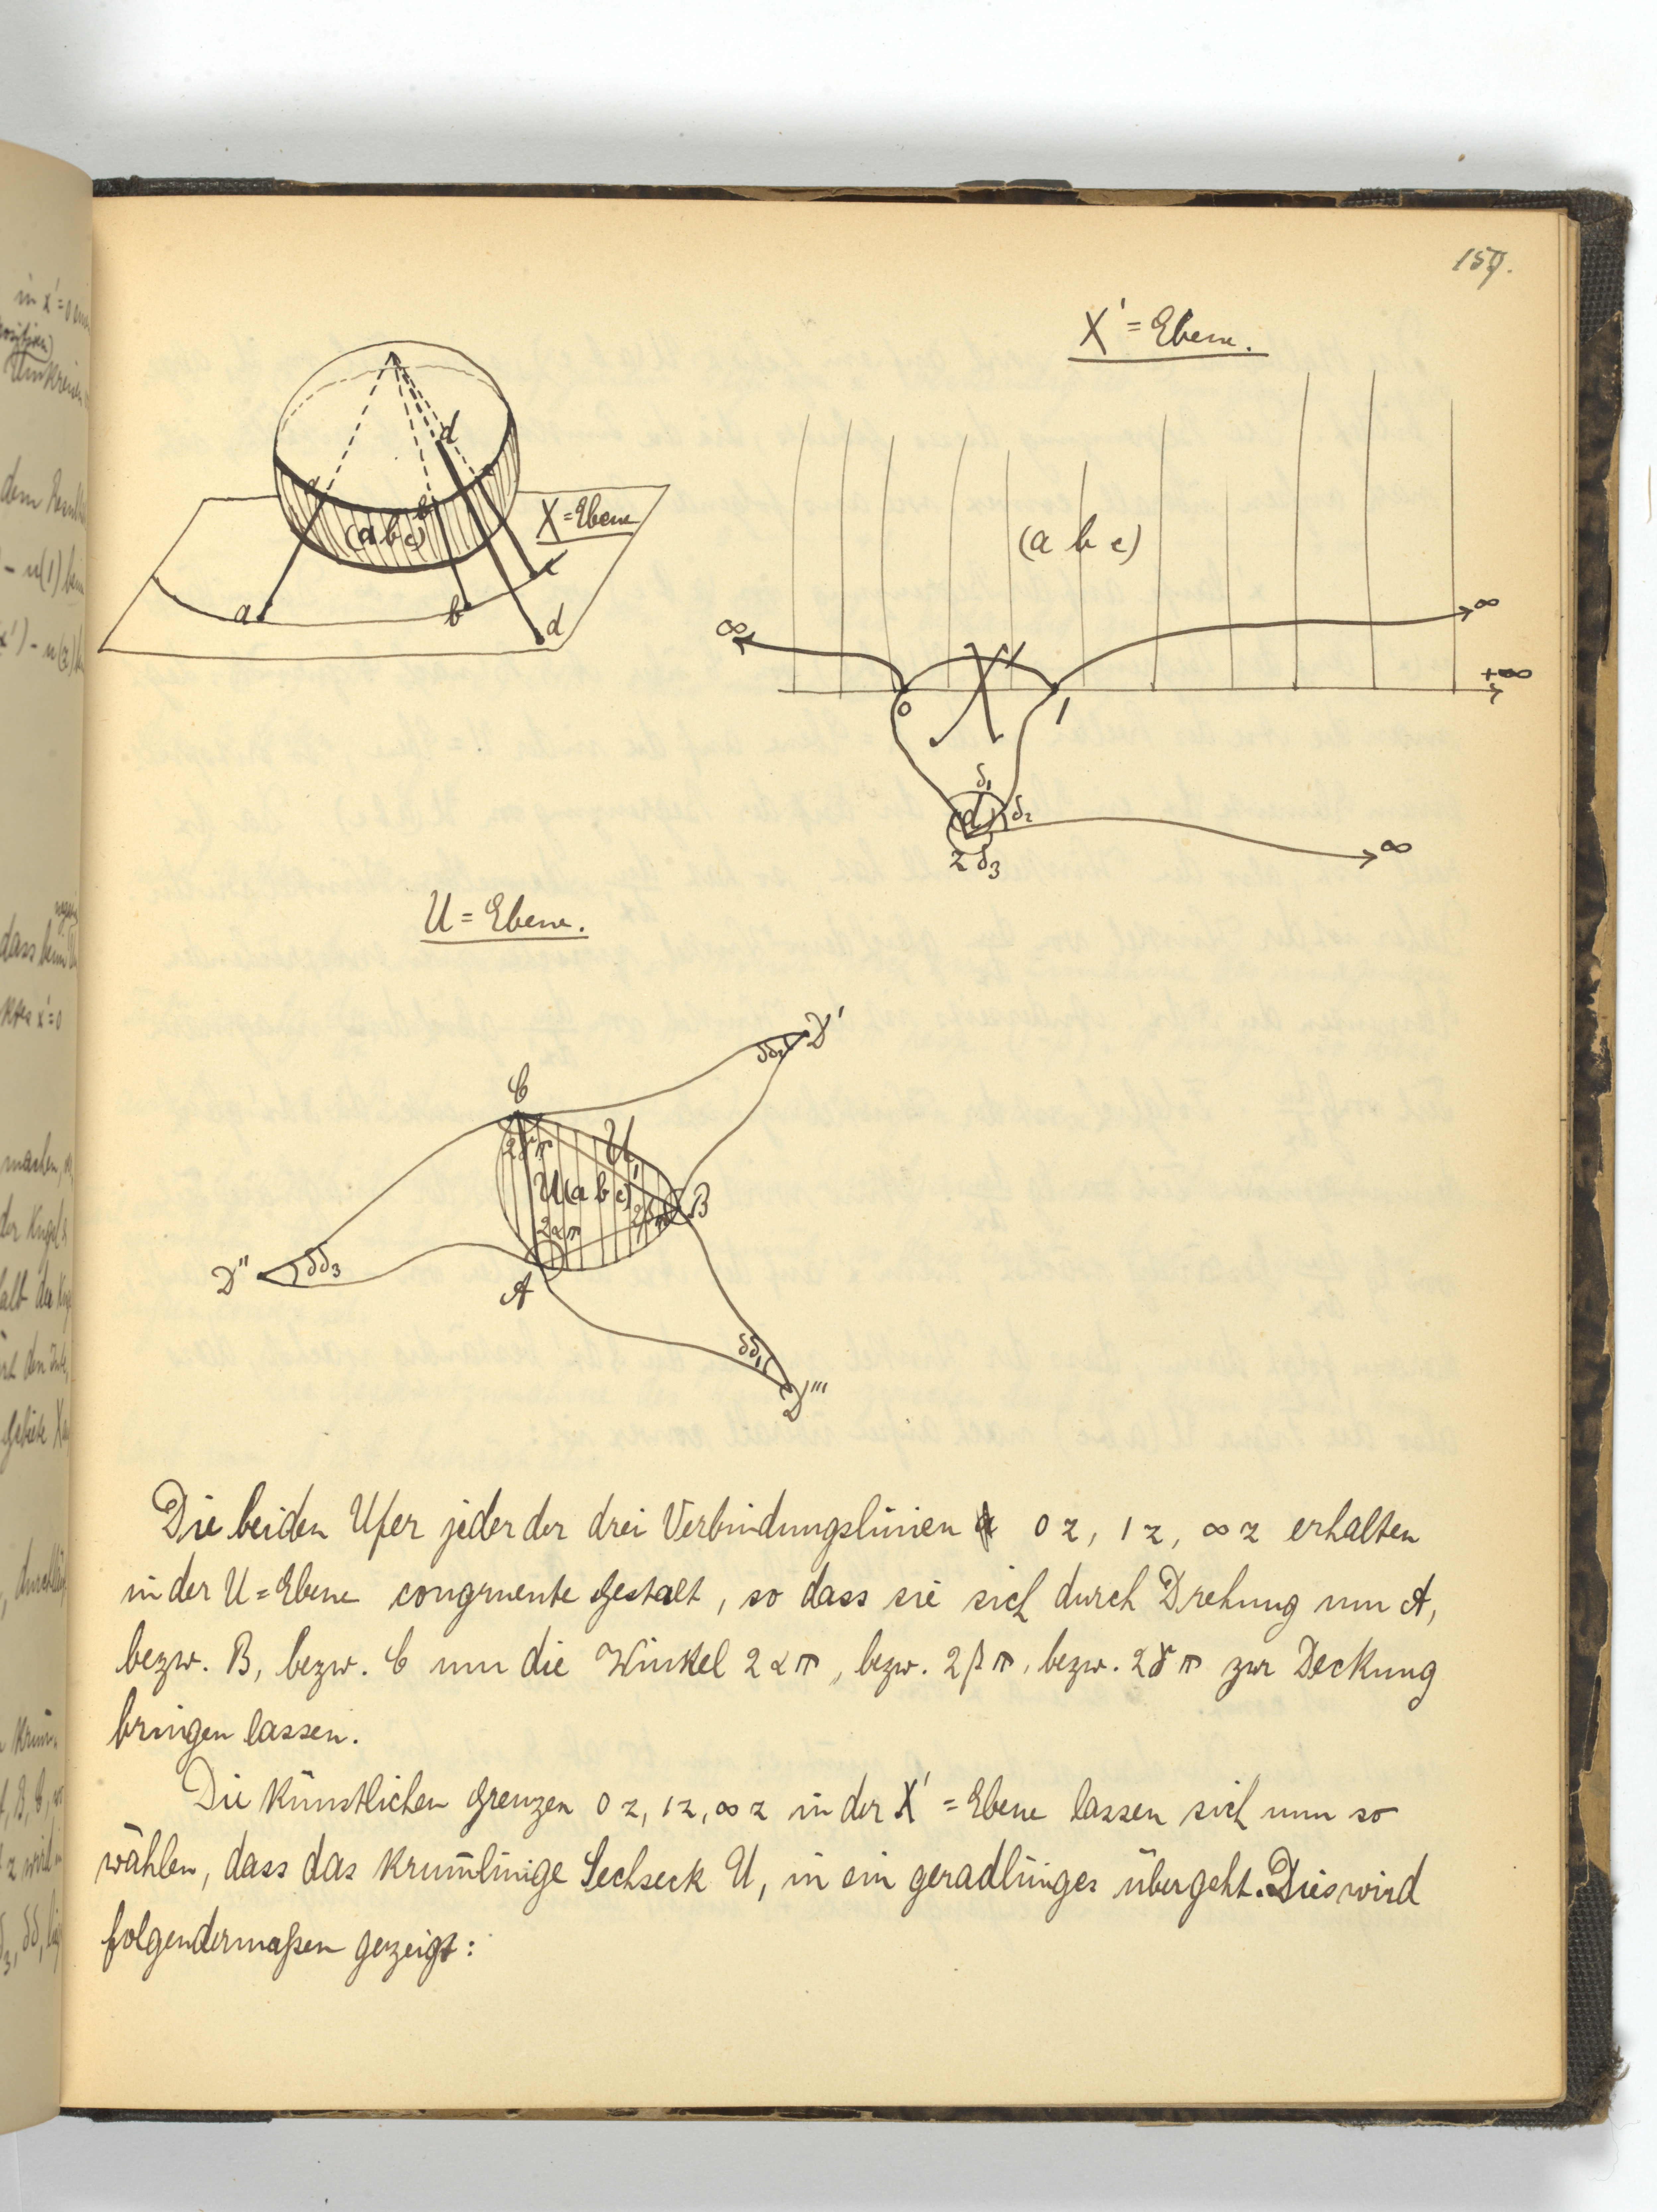 159.
X' = Ebene.
d
a
b
(abc)
X = Ebene
a
b
c
d
(a b c)
∞
∞
+∞
0
1
δ₁
(d)
δ₂
z δ₃
∞
U = Ebene.
D'
δδ₂
C
2γπ
U₁
U(abc)
2βπ
B
2απ
D''
δδ₃
A
δδ₁
D'''
Die beiden Ufer jeder der drei Verbindungslinien 0z, 1z, ∞z erhalten
in der U = Ebene congruente Gestalt, so dass sie sich durch Drehung um A,
bezw. B, bezw. C um die Winkel 2απ, bezw. 2βπ, bezw. 2γπ zur Deckung
bringen lassen.
Die künstlichen Grenzen 0z, 1z, ∞z in der X' = Ebene lassen sich nun so
wählen, dass das krum̄linige Sechseck U, in ein geradliniges übergeht. Dies wird
folgendermaßen gezeigt: